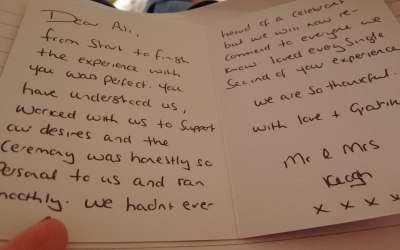 Dear Ali,
from start to finish
the experience with
you was perfect. You
have understood us,
worked with us to support
our desires and the
ceremony was honestly so
personal to us and ran
smoothly. We hadnt ever
heard of a celebrant
but we will now re-
commend to everyone we
know. Loved every single
second of your experience
we are so thankful.
with love + Gratitu
Mr & Mrs
Keogh
x x x x